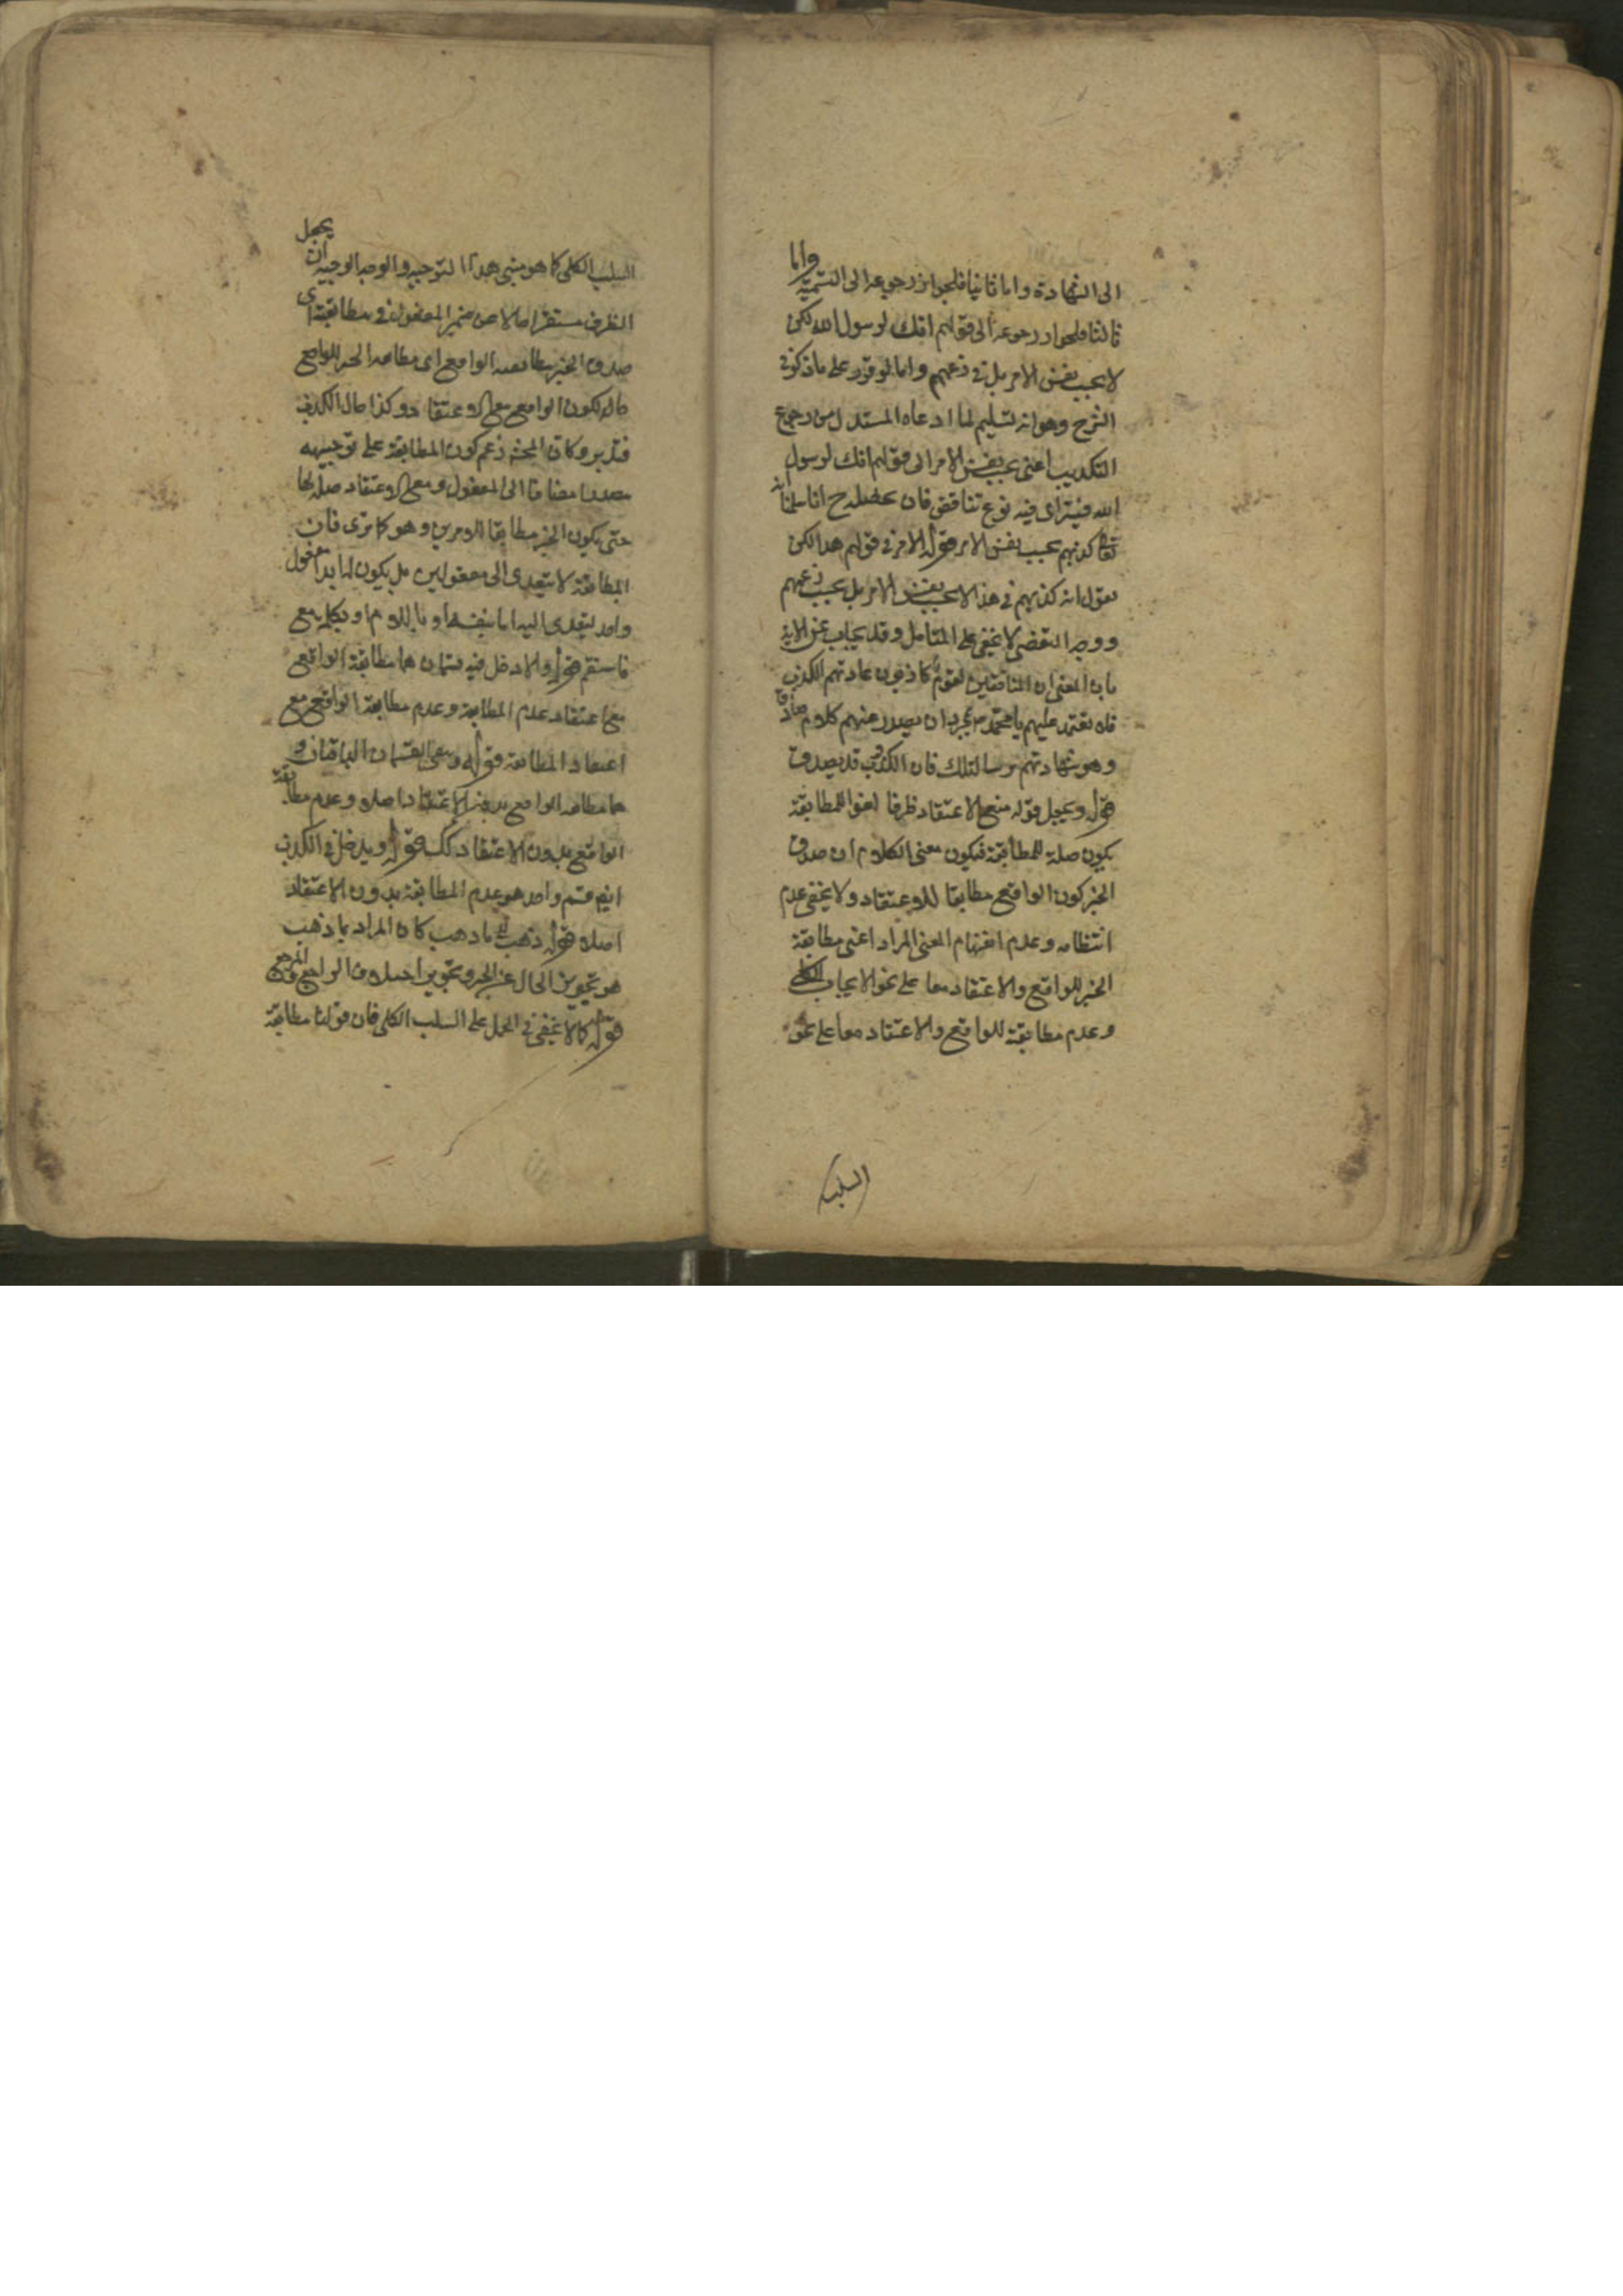 الى الشهادة واما ثانيا فلجواز رجوعه الى التسمية واما
ثالثا فلجواز رجوعه الى قولهم انك لرسول الله لكن
لا بحسب نفس الامر بل في زعمهم واما لو قرر على ما ذكر في
الشرح وهو انه تسليم لما ادعاه المستدل من رجوع
التكذيب اعنى بحسب نفس الامر الى قولهم انك لرسول
الله فيتراى فيه نوع تناقض فان محصله ح انا سلمنا انه
تعالى كذبهم بحسب نفس الامر قوله الامر في قولهم هذا لكن
نقول انه كذبهم في هذا لا بحسب نفس الامر بل بحسب زعمهم
ووجه التفصى لا يخفى على المتامل وقد يجاب عن الاية
بان المعنى ان المنافقين لقوم كاذبون عادتهم الكذب
فلا تعتمد عليهم يا محمد بمجرد ان يصدر عنهم كلام صادق
وهو شهادتهم برسالتك فان الكذوب قد يصدق
قوله ويجعل قوله مع الاعتقاد ظرفا لغوا للمطابقة
يكون صلة للمطابقة فيكون معنى الكلام ان صدق
الخبر كون الواقع مطابقا للاعتقاد ولا يخفى عدم
انتظامه وعدم انفهام المعنى المراد اعنى مطابقة
الخبر للواقع والاعتقاد معا على نحو الايجاب الكلى
وعدم مطابقة للواقع والاعتقاد معا على نحو
السلب
السلب الكلى كما هو مبنى هذا التوجيه والوجه الوجيه ان يجعل
الظرف مستقرا حالا عن ضمير المفعول في مطابقته اى
صدق الخبر مطابقته الواقع اى مطابقة الخبر للواقع
حال كون الواقع مع الاعتقاد وكذا حال الكذب
فتدبر وكان المحشى زعم كون المطابقة على توجيهه
مصدرا مضافا الى المفعول ومع الاعتقاد صلة لها
حتى يكون الخبر مطابقا للامرين وهو كما ترى فان
المطابقة لا تتعدى الى مفعولين بل يكون لها ابدا مفعول
واحد يتعدى اليه اما بنفسها او باللام او بكلمة مع
فاستقم قوله والا دخل فيه قسمان هما مطابقة الواقع
مع اعتقاد عدم المطابقة وعدم مطابقة الواقع مع
اعتقاد المطابقة قوله وبقى القسمان الباقيان و
هما مطابقة الواقع بدون الاعتقاد اصلا وعدم مطابقة
الواقع بدون الاعتقاد كك قوله ويدخل في الكذب
ايضا قسم واحد هو عدم المطابقة بدون الاعتقاد
اصلا قوله ذهب اليه ما ذهب كان المراد بما ذهب
هو تجويز الحال عن الجزء وتجويز اختلاف الراجع والمرجع
قوله كما لا يخفى في الحمل على السلب الكلى فان قولنا مطابقة